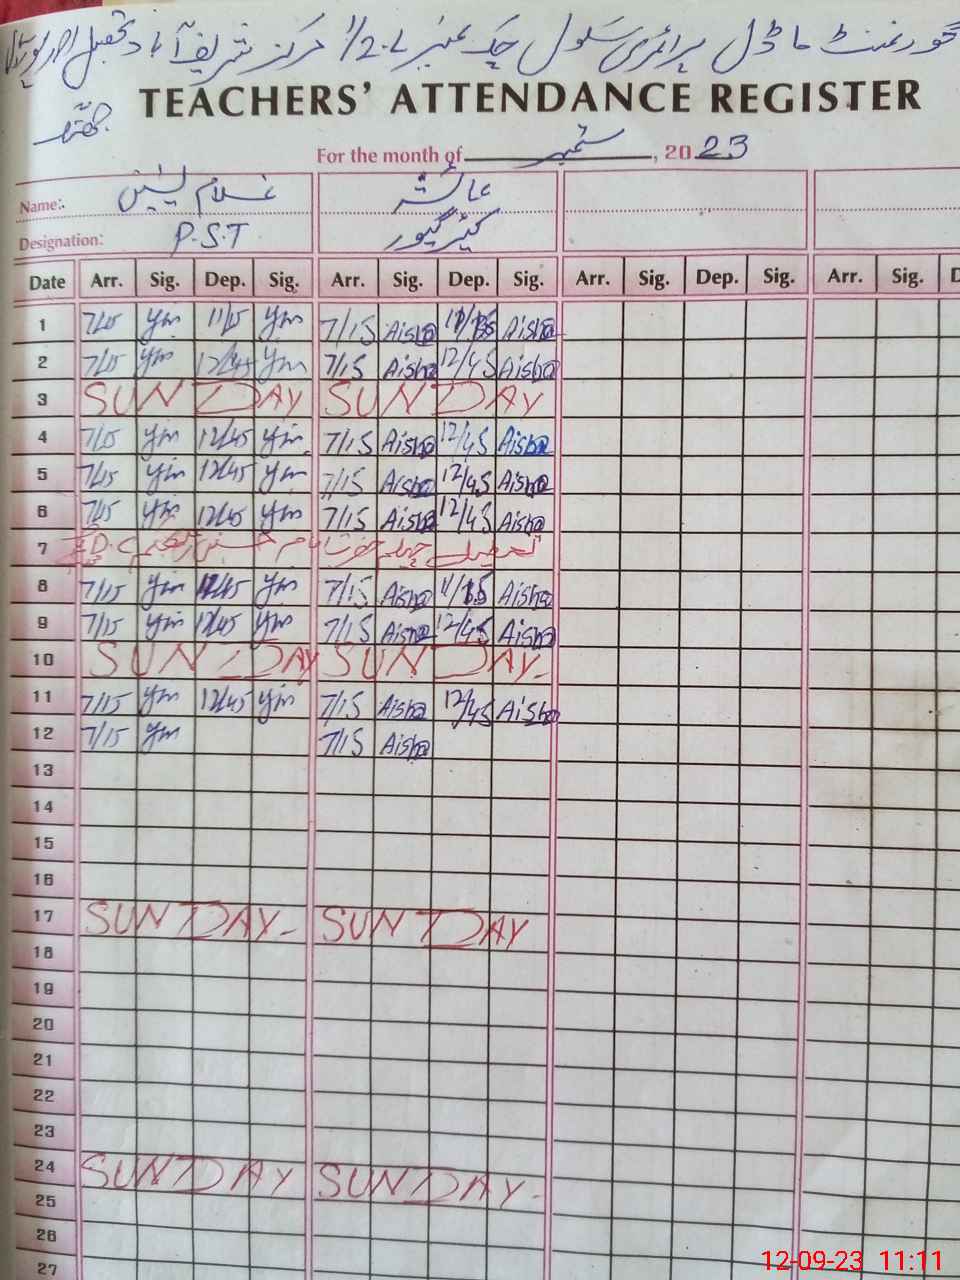 گورنمنٹ ماڈل پرائمری سکول چک نمبر 1/2.L مرکز شریف آباد تحصیل احمد پور سیال
جھنگ
TEACHERS' ATTENDANCE REGISTER
For the month of ستمبر, 2023
Name: غلام یٰسین عائشہ
Designation: P.S.T کیئر گیور
Date Arr. Sig. Dep. Sig. Arr. Sig. Dep. Sig. Arr. Sig. Dep. Sig. Arr. Sig. D
1 7/15 ym 11/15 ym 7/15 Aisha Aisha
2 7/15 ym 12/45 ym 7/15 Aisha 12/45 Aisha
3 SUNDAY SUNDAY
4 7/15 ym 12/45 ym 7/15 Aisha 12/45 Aisha
5 7/15 ym 12/45 ym 7/15 Aisha 12/45 Aisha
6 7/15 ym 12/45 ym 7/15 Aisha 12/45 Aisha
7 تعطیل چہلم حضرت امام حسین
8 7/15 ym ym 7/15 Aisha Aisha
9 7/15 ym 12/45 ym 7/15 Aisha 12/45 Aisha
10 SUNDAY SUNDAY-
11 7/15 ym 12/45 ym 7/15 Aisha 12/45 Aisha
12 7/15 ym 7/15 Aisha
13
14
15
16
17 SUNDAY- SUNDAY
18
19
20
21
22
23
24 SUNDAY SUNDAY-
25
26
27
12-09-23 11:11